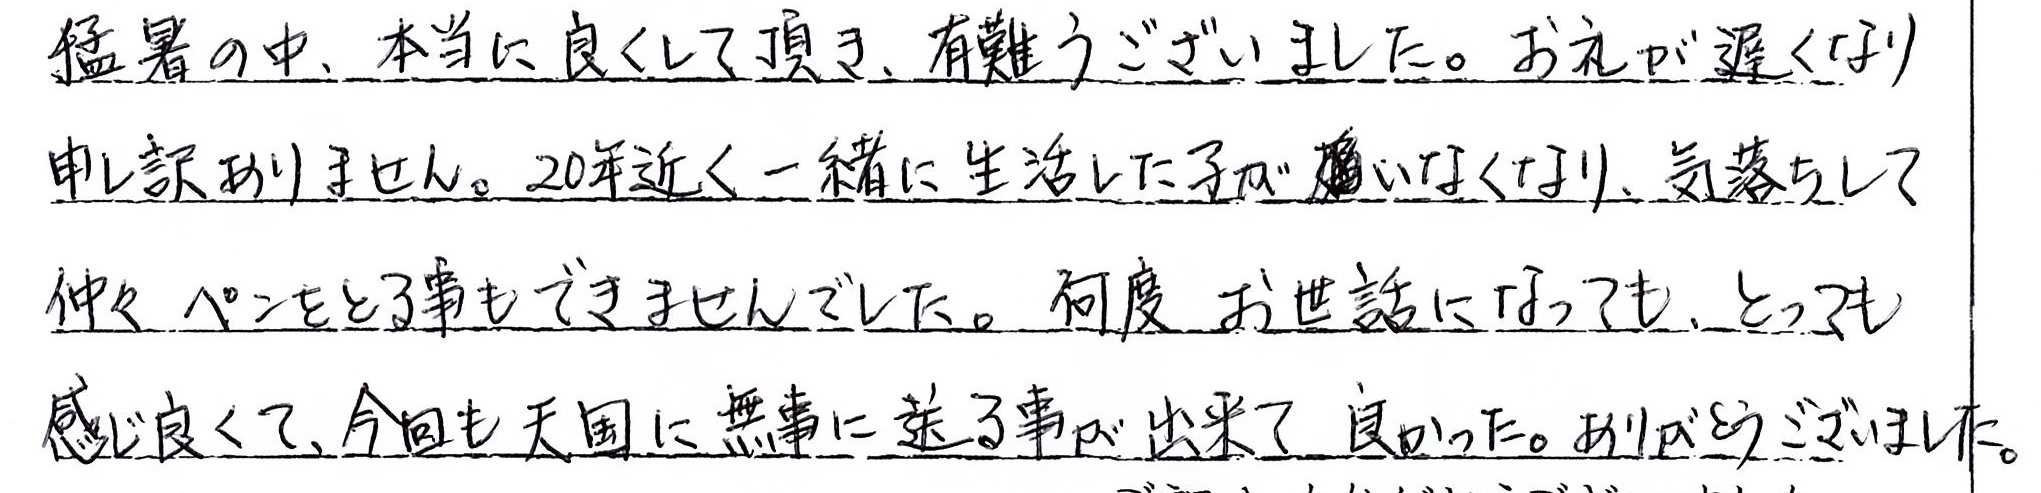 猛暑の中、本当に良くして頂き、有難うございました。お礼が遅くなり
申し訳ありません。20年近く一緒に生活した子がいなくなり、気落ちして
仲々ペンをとる事もできませんでした。何度お世話になっても、とっても
感じ良くて、今回も天国に無事に送る事が出来て良かった。ありがとうございました。